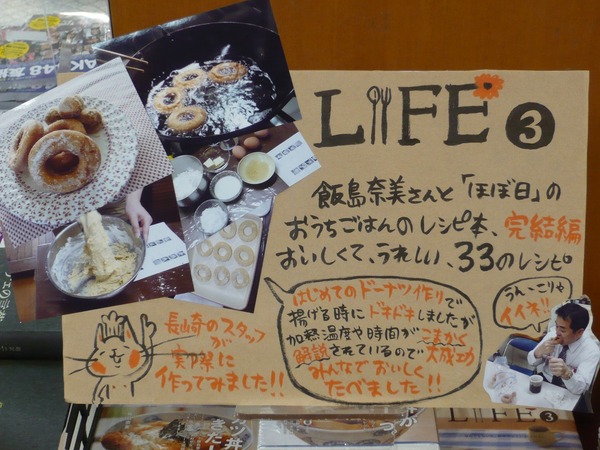 LIFE 3
飯島奈美さんと「ほぼ日」の
おうちごはんのレシピ本、完結編
おいしくて、うれしい、33のレシピ
はじめてのドーナツ作りで
揚げる時にドキドキしましたが
加熱温度や時間がこまかく
解説されているので大成功
みんなでおいしく
たべました!!
長崎のスタッフ
が実際に
作ってみました!!
うん、こりゃ
イイネ!!
LIFE 3